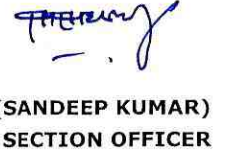 (SANDEEP KUMAR)
SECTION OFFICER